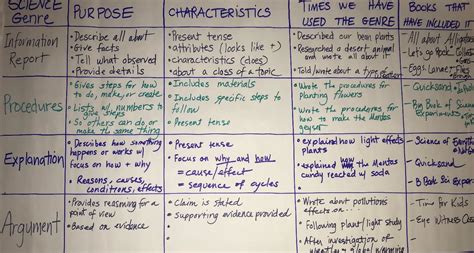 SCIENCE Genre
PURPOSE
CHARACTERISTICS
TIMES WE HAVE
USED THE GENRE
BOOKS THAT
HAVE INCLUDED IT
Information
Report
• Describe all about
• Give facts
• Tell what observed
• Provide details
• Present tense
• attributes (looks like +)
• characteristics (does)
• about a class of a topic
• Described our bean plants
• Researched a desert animal
and wrote all about it
• Told/wrote about a type
- All about
- Let's go Rock
- Eggs
Procedures
• Gives steps for how
to do, make, or create
• Lists w/ numbers to
give steps
• So others can do or
make the same thing
• Includes materials
• Includes specific steps to
follow
• Present tense
• Wrote the procedures for
planting flowers
• Wrote the procedures for
how to make the Mentos
geyser
- Quicksand
- Big Book of
Experiments
Explanation
• Describes how something
happens or works w/
focus on how + why
• Reasons, causes,
conditions, effects
• Present tense
• Focus on why and how
= cause/effect
= sequence of cycles
• explained how light effects
plants
• explained how the Mentos
candy reacted w/ soda
- Science of
- Quicksand
- B Book Sci Exper
Argument
• Provides reasoning for a
point of view
• Based on evidence
• Claim is stated
• Supporting evidence provided
• Wrote about pollutions
effects on...
• Following plant/light study
• After investigation of
weather - global warming
- Time for Kids
- Eye Witness